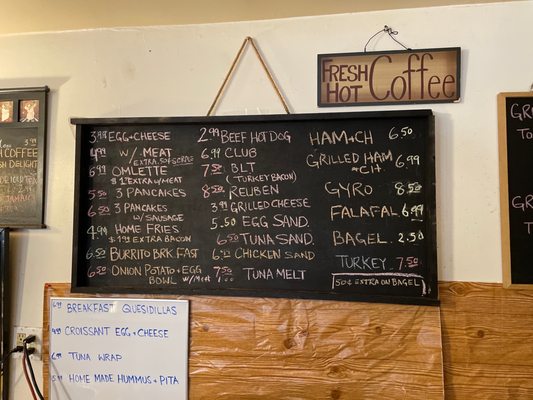 FRESH HOT Coffee
3.99 EGG+CHEESE
4.99 W/ MEAT
EXTRA.50¢ SCRPLE
6.99 OMLETTE
$1 EXTRA W/MEAT
5.50 3 PANCAKES
6.50 3 PANCAKES
W/SAUSAGE
4.99 HOME FRIES
$1.99 EXTRA BACON
6.50 BURRITO BRKFAST
6.50 ONION POTATO+EGG
BOWL W/MEAT
2.99 BEEF HOT DOG
6.99 CLUB
7.50 BLT
(TURKEY BACON)
8.50 REUBEN
3.99 GRILLED CHEESE
5.50 EGG SAND.
6.50 TUNA SAND.
CHICKEN SAND
7.50 TUNA MELT
HAM+CH 6.50
GRILLED HAM 6.99
+CH
GYRO 8.50
FALAFAL 6.99
BAGEL 2.50
TURKEY 7.50
50¢ EXTRA ON BAGEL
BREAKFAST QUESIDILLAS
CROISSANT EGG+CHEESE
TUNA WRAP
HOME MADE HUMMUS+PITA
COFFEE